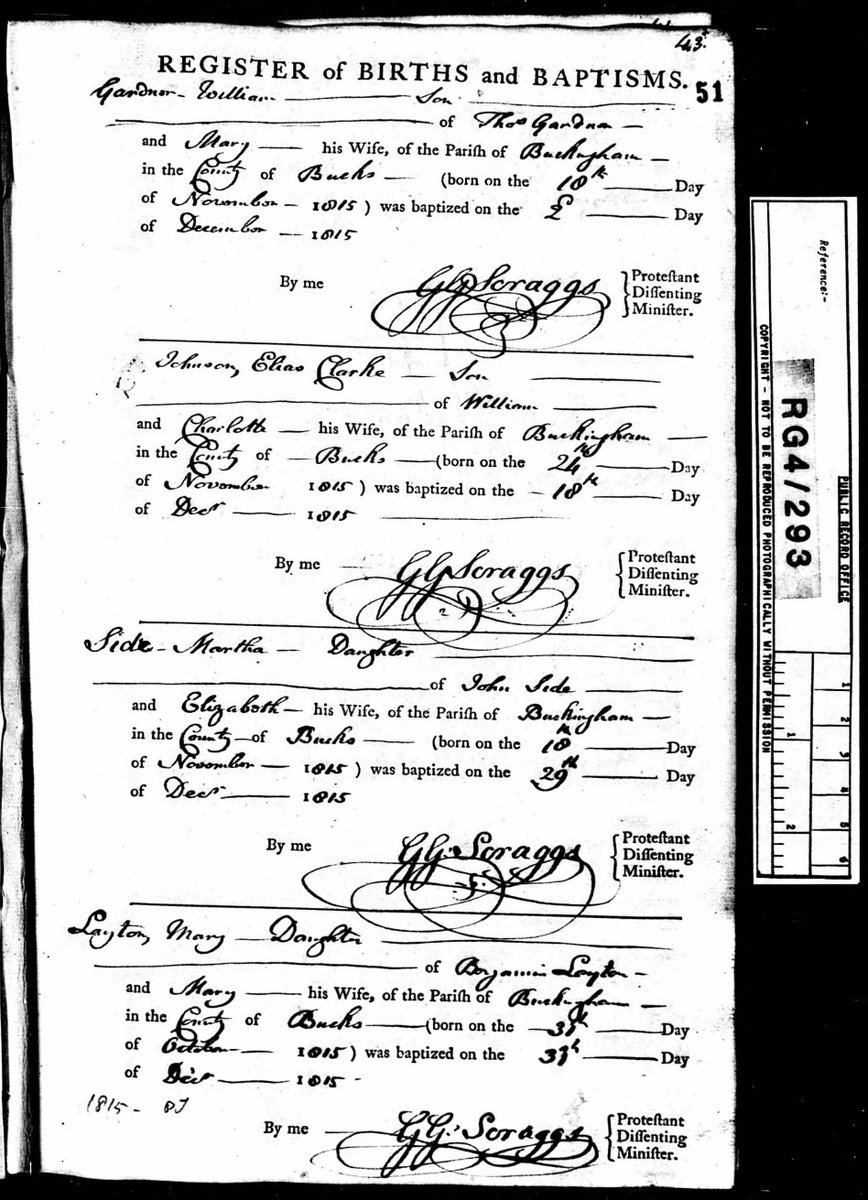 43.
REGISTER of BIRTHS and BAPTISMS. 51
Gardner William Son
of Thos Gardner
and Mary his Wife, of the Pariſh of Buckingham
in the County of Bucks (born on the 18th Day
of November 1815 ) was baptized on the Day
of December 1815
By me GG Scraggs Proteſtant
Diſſenting
Miniſter.
Johnson, Elias Clarke Son
of William
and Charlotte his Wife, of the Pariſh of Buckingham
in the County of Bucks (born on the 24th Day
of November 1815 ) was baptized on the 18th Day
of Decr 1815
By me GG Scraggs Proteſtant
Diſſenting
Miniſter.
Side Martha Daughter
of John Side
and Elizabeth his Wife, of the Pariſh of Buckingham
in the County of Bucks (born on the 18th Day
of November 1815 ) was baptized on the 29th Day
of Decr 1815
By me GG. Scraggs Proteſtant
Diſſenting
Miniſter.
Layton, Mary Daughter
of Benjamin Layton
and Mary his Wife, of the Pariſh of Buckingham
in the County of Bucks (born on the Day
of October 1815 ) was baptized on the Day
of Decr 1815
1815 -
By me GG. Scraggs Proteſtant
Diſſenting
Miniſter.
Reference:-
RG4/293
PUBLIC RECORD OFFICE
COPYRIGHT - NOT TO BE REPRODUCED PHOTOGRAPHICALLY WITHOUT PERMISSION
1 2 3 4 5 6
1 2